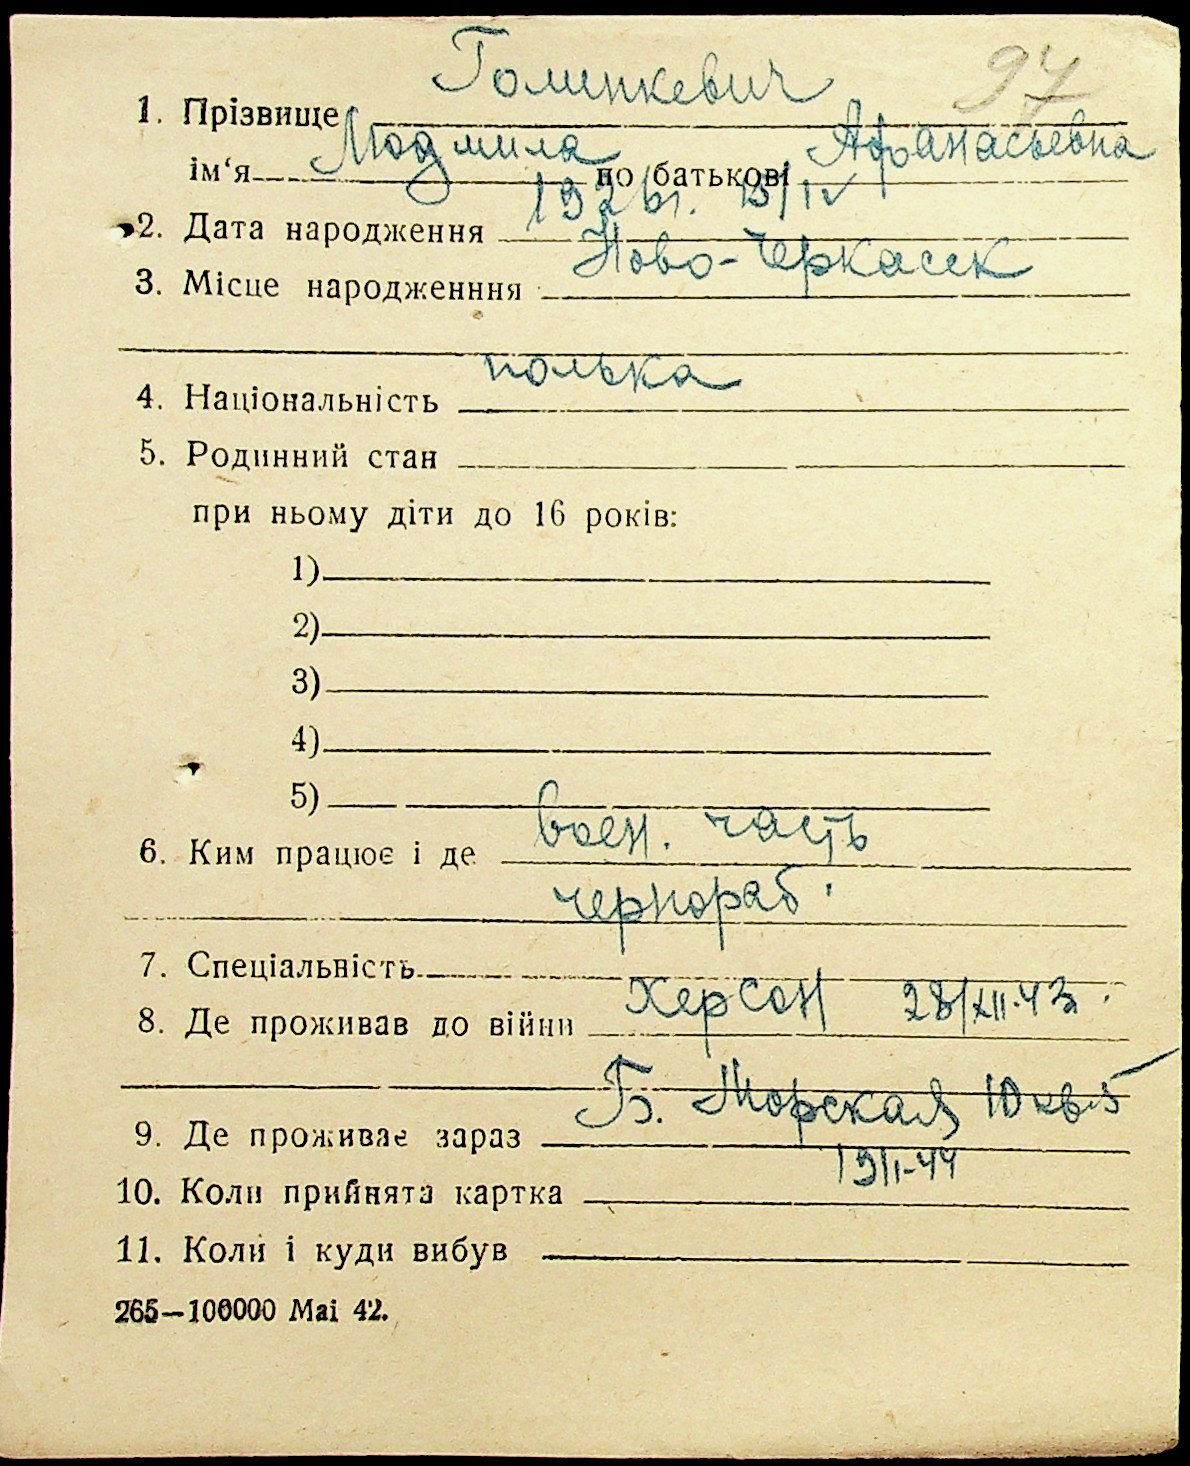 Голинкевич 97
1. Прізвище
Людмила Афанасьевна
ім‘я по батькові
1926г. 13/IV
2. Дата народження
Ново-Черкасск
3. Місце народженння
полька
4. Національність
5. Родинний стан
при ньому діти до 16 років:
1)
2)
3)
4)
5)
воен. часть
6. Ким працює і де
чернораб.
7. Спеціальність
Херсон 28/XII-43
8. Де проживав до війни
Б. Морская 10 кв 5
9. Де проживає зараз
19/I-44
10. Коли прийнята картка
11. Коли і куди вибув
265—100000 Mai 42.